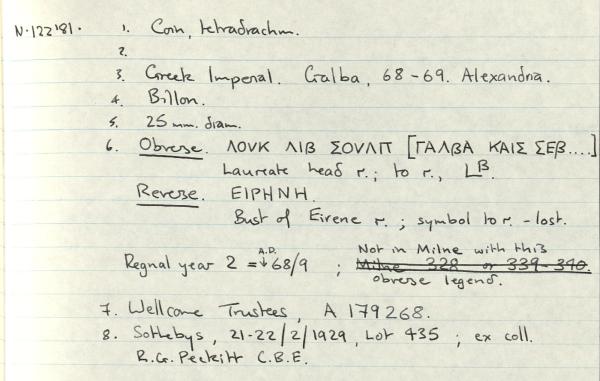 N.122'81.
1. Coin, tetradrachm.
2.
3. Greek Imperial. Galba, 68-69. Alexandria.
4. Billon.
5. 25 mm. diam.
6. Obverse. ΛΟΥΚ ΛΙΒ ΣΟΥΛΠ [ΓΑΛΒΑ ΚΑΙΣ ΣΕΒ....]
Laureate head r.; to r., L B
Reverse. ΕΙΡΗΝΗ.
Bust of Eirene r.; symbol to r. - lost.
Regnal year 2 = A.D. 68/9 ; Not in Milne with this
Milne 328 or 339-340.
obverse legend.
7. Wellcome Trustees, A 179268.
8. Sothebys, 21-22/2/1929, Lot 435 ; ex coll.
R.G. Peckitt C.B.E.